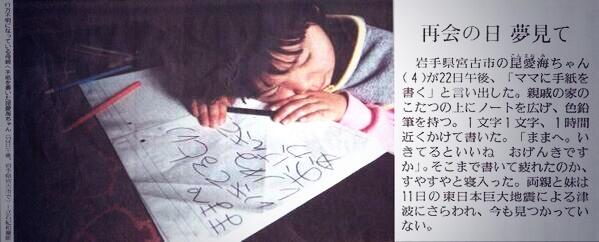 再会の日 夢見て
岩手県宮古市の昆愛海ちゃん
(4)が22日午後、「ママに手紙を
書く」と言い出した。親戚の家の
こたつの上にノートを広げ、色鉛
筆を持つ。1文字1文字、1時間
近くかけて書いた。「ままへ。い
きてるといいね　おげんきです
か」。そこまで書いて疲れたのか、
すやすやと寝入った。両親と妹は
11日の東日本巨大地震による津
波にさらわれ、今も見つかってい
ない。
行方不明になっている母親へ手紙を書いた昆愛海ちゃん